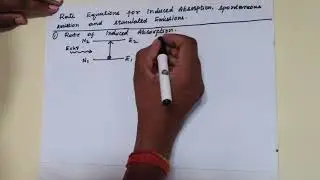 Rate Equations for Induced Absorption, Spontaneous
Emission and Stimulated Emissions.
① Rate of Induced Absorption.
N2 E2
E=hν
N1 E1